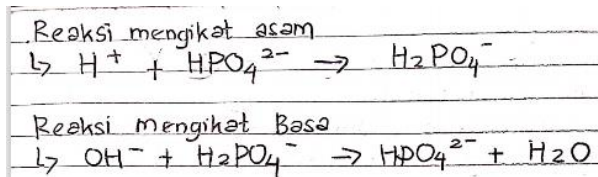 Reaksi mengikat asam
↳ H⁺ + HPO₄²⁻ → H₂PO₄⁻
Reaksi mengikat Basa
↳ OH⁻ + H₂PO₄⁻ → HPO₄²⁻ + H₂O